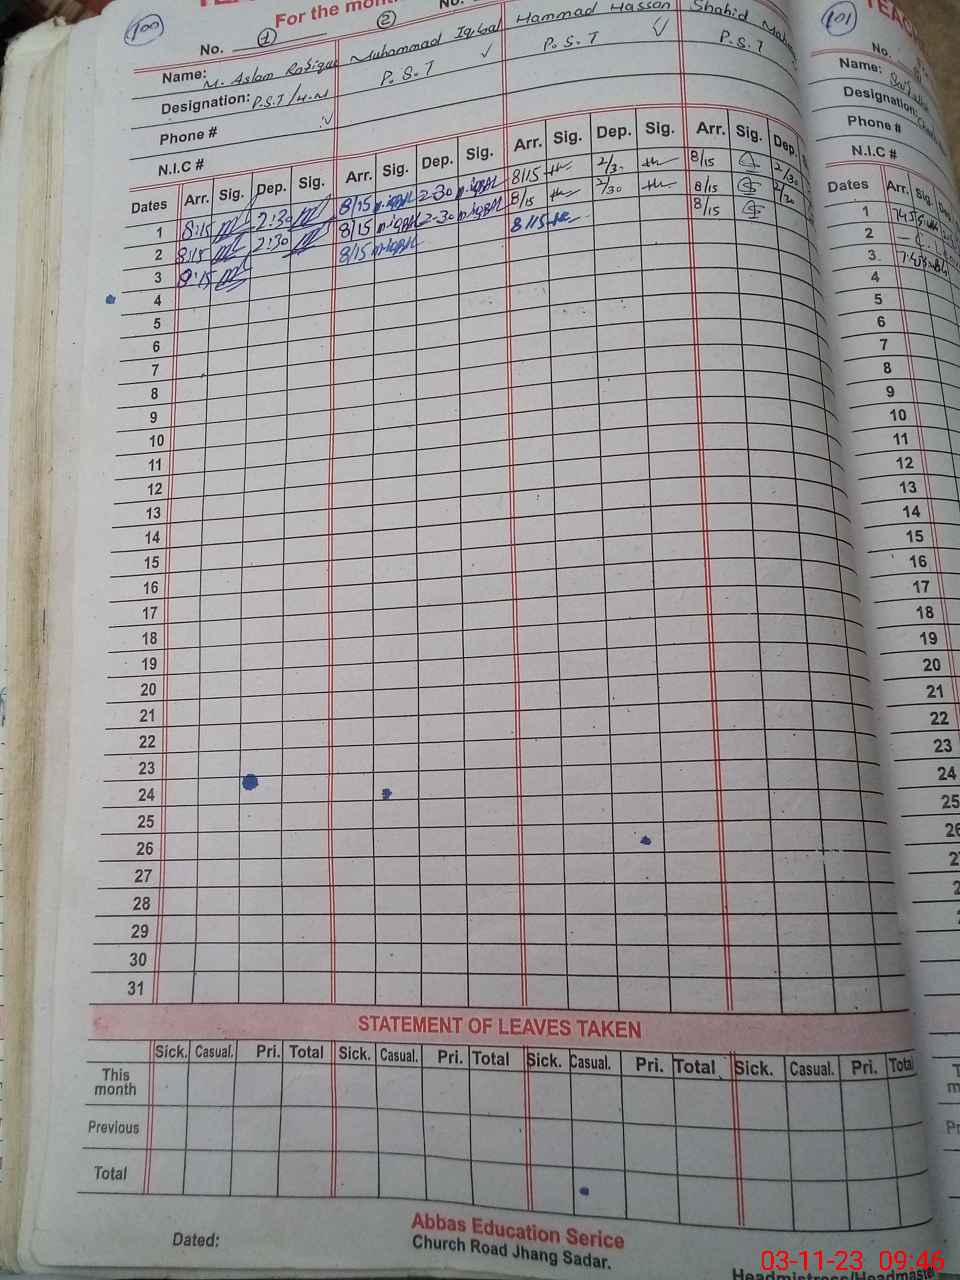 100
For the mon
No. 1
2
No.
Name: M. Aslam Rafique
Muhammad Iqbal
Hammad Hassan
Shahid
Designation: P.S.T / H.M
P.S.T
P.S.T
P.S.T
Phone #
N.I.C #
Dates Arr. Sig. Dep. Sig. Arr. Sig. Dep. Sig. Arr. Sig. Dep. Sig. Arr. Sig. Dep.
1 8:15 2:30 8/15 m.iqbal 2-30 m.iqbal 8/15 2/3. 8/15 2/30
2 8:15 2:30 8/15 m.iqbal 2-30 m.iqbal 8/15 2/30 8/15 2/30
3 8:15 8/15 m.iqbal 8/15 8/15
4
5
6
7
8
9
10
11
12
13
14
15
16
17
18
19
20
21
22
23
24
25
26
27
28
29
30
31
STATEMENT OF LEAVES TAKEN
Sick. Casual. Pri. Total Sick. Casual. Pri. Total Sick. Casual. Pri. Total Sick. Casual. Pri. Total
This month
Previous
Total
Dated:
Abbas Education Serice
Church Road Jhang Sadar.
Headmistress/Headmaste
101
TEAC
No.
Name:
Designation:
Phone #
N.I.C #
Dates Arr. Sig.
1
2
3
4
5
6
7
8
9
10
11
12
13
14
15
16
17
18
19
20
21
22
23
24
25
26
03-11-23 09:46